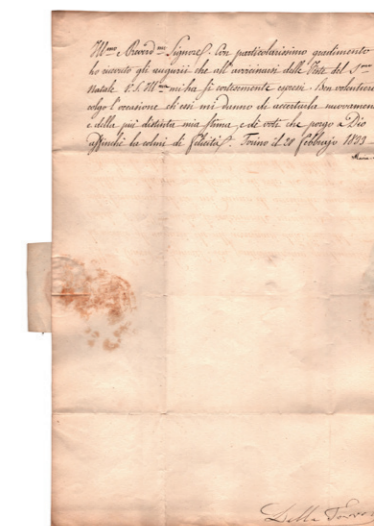 M.mo e Reverd.mo Signore. Con particolarissimo gradimento
ho ricevuto gli augurii che all'avvicinarsi delle Feste del S.mo
Natale V.S. M.to mi ha sì cortesemente espressi. Ben volentieri
colgo l'occasione di essi mi danno di accertarla nuovamen
e della più distinta mia stima, e di voti che porgo a Dio
affinchè la colmi di felicità. Torino il 28 Febbrajo 1823
Maria
Della Torre